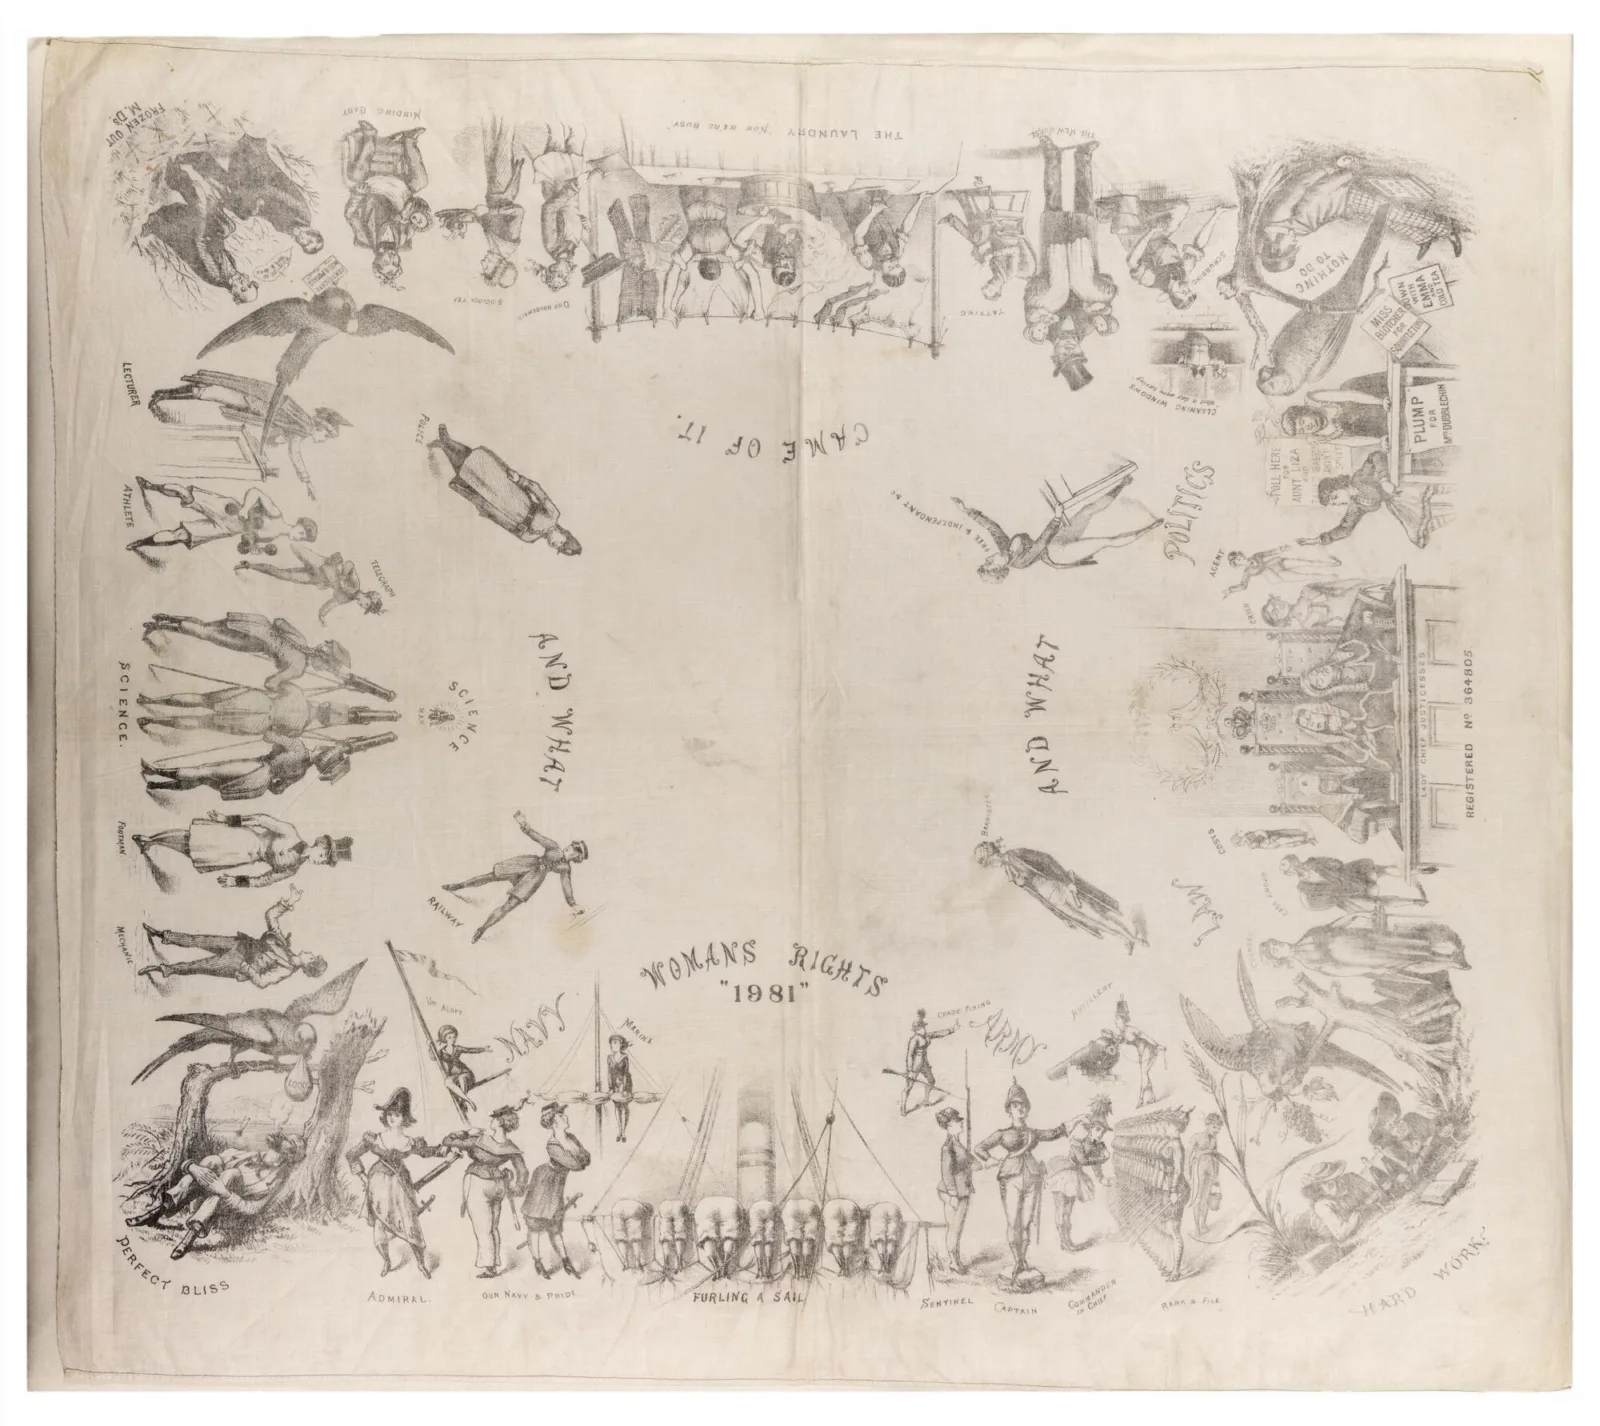 WOMANS RIGHTS
"1981"
AND WHAT
CAME OF IT.
AND WHAT
FROZEN OUT
M.Ds.
MINDING BABY
THE LAUNDRY
THE NEW NURSE
TATTING
SCRUBBING
CLEANING WINDOWS
NOTHING
TO DO
DOWN
WITH
EMMA
AND
DEAR TEA
MISS
BUTCHER
FOR
PLUMP
FOR
POLL HERE
FOR
AUNT LIZA
POLITICS
AGENT
CRIER
LADY CHIEF JUSTICESSES
REGISTERED No 364805
COSTS
LAW
BARRISTER
HARD WORK!
LECTURER
ATHLETE
POLICE
TELEGRAPH
SCIENCE.
SCIENCE
MAN
FOOTMAN
MECHANIC
RAILWAY
UP ALOFT
NAVY
MARINE
ARMY
ARTILLERY
PERFECT BLISS
ADMIRAL.
OUR NAVY & PRIDE
FURLING A SAIL
SENTINEL
CAPTAIN
COMMANDER
IN CHIEF
RANK & FILE